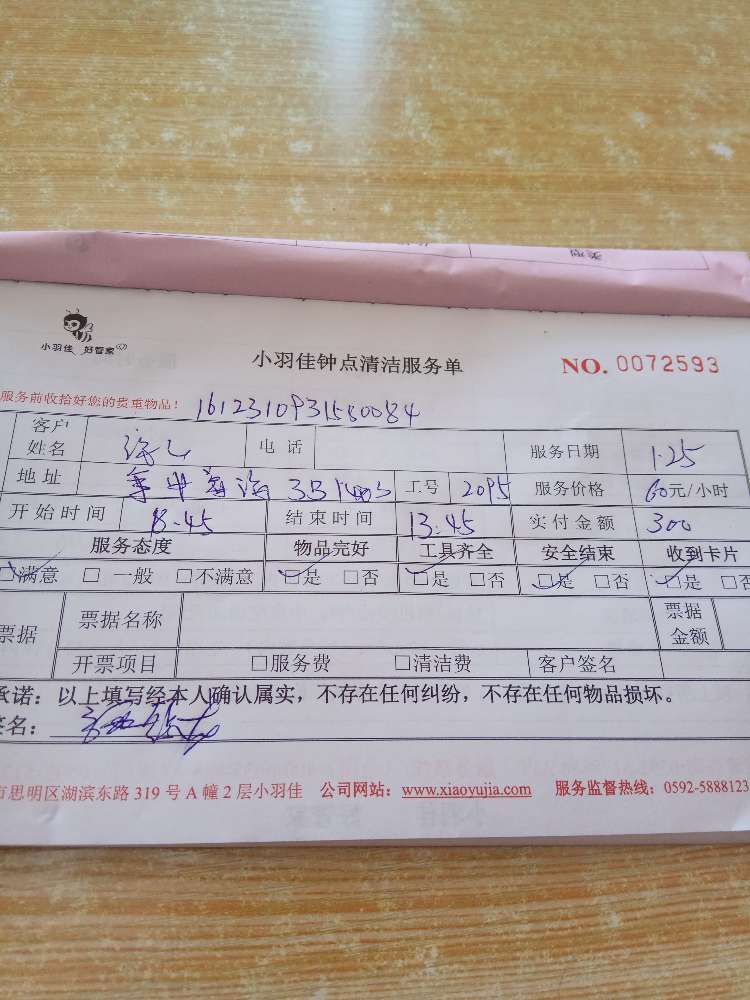 小羽佳 好管家
小羽佳钟点清洁服务单 NO. 0072593
服务前收拾好您的贵重物品： 1612310931580084
客户姓名 电话 服务日期 1.25
地址 33 1403 工号 2095 服务价格 60元/小时
开始时间 8.45 结束时间 13:45 实付金额 300
服务态度 物品完好 工具齐全 安全结束 收到卡片
□满意 □一般 □不满意 □是 □否 □是 □否 □是 □否 □是 □否
票据 票据名称 票据金额
开票项目 □服务费 □清洁费 客户签名
承诺：以上填写经本人确认属实，不存在任何纠纷，不存在任何物品损坏。
签名：
市思明区湖滨东路 319 号 A 幢 2 层小羽佳 公司网站：www.xiaoyujia.com 服务监督热线：0592-5888123